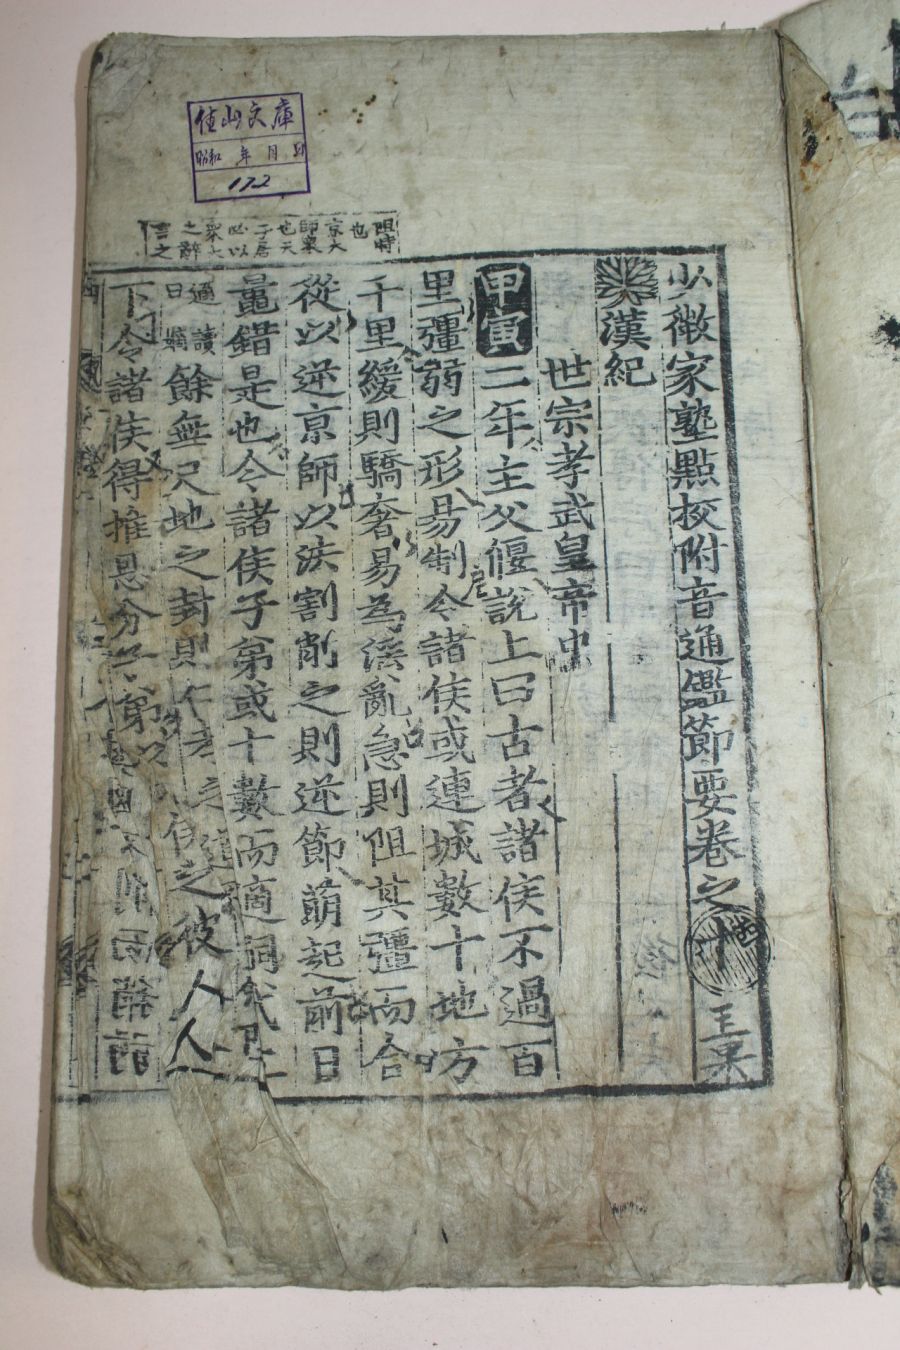 少微家塾點校附音通鑑節要卷之十
漢紀
世宗孝武皇帝中
甲寅二年主父偃說上曰古者諸侯不過百
里彊弱之形易制今諸侯或連城數十地方
千里緩則驕奢易為滛亂急則阻其彊而合
從以逆京師以法割削之則逆節萌起前日
鼂錯是也今諸侯子弟或十數而適嗣代
適讀曰嫡餘無尺地之封則仁孝之
下令諸侯得推恩分子弟
彼人人
阻時
也
京大
師衆
也天
子居
必以
衆大
之辭
言之
文庫
昭和 年 月 日
172